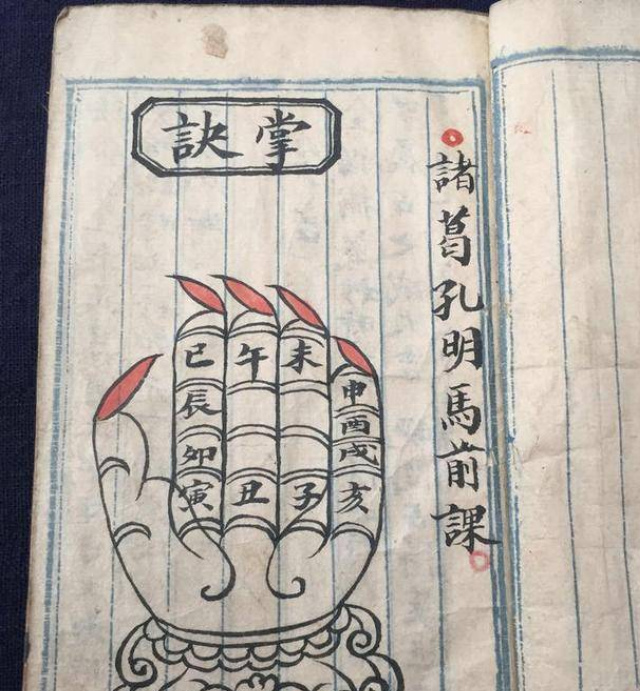 諸葛孔明馬前課
掌訣
巳午未
申
辰
酉
卯
戌
寅丑子亥